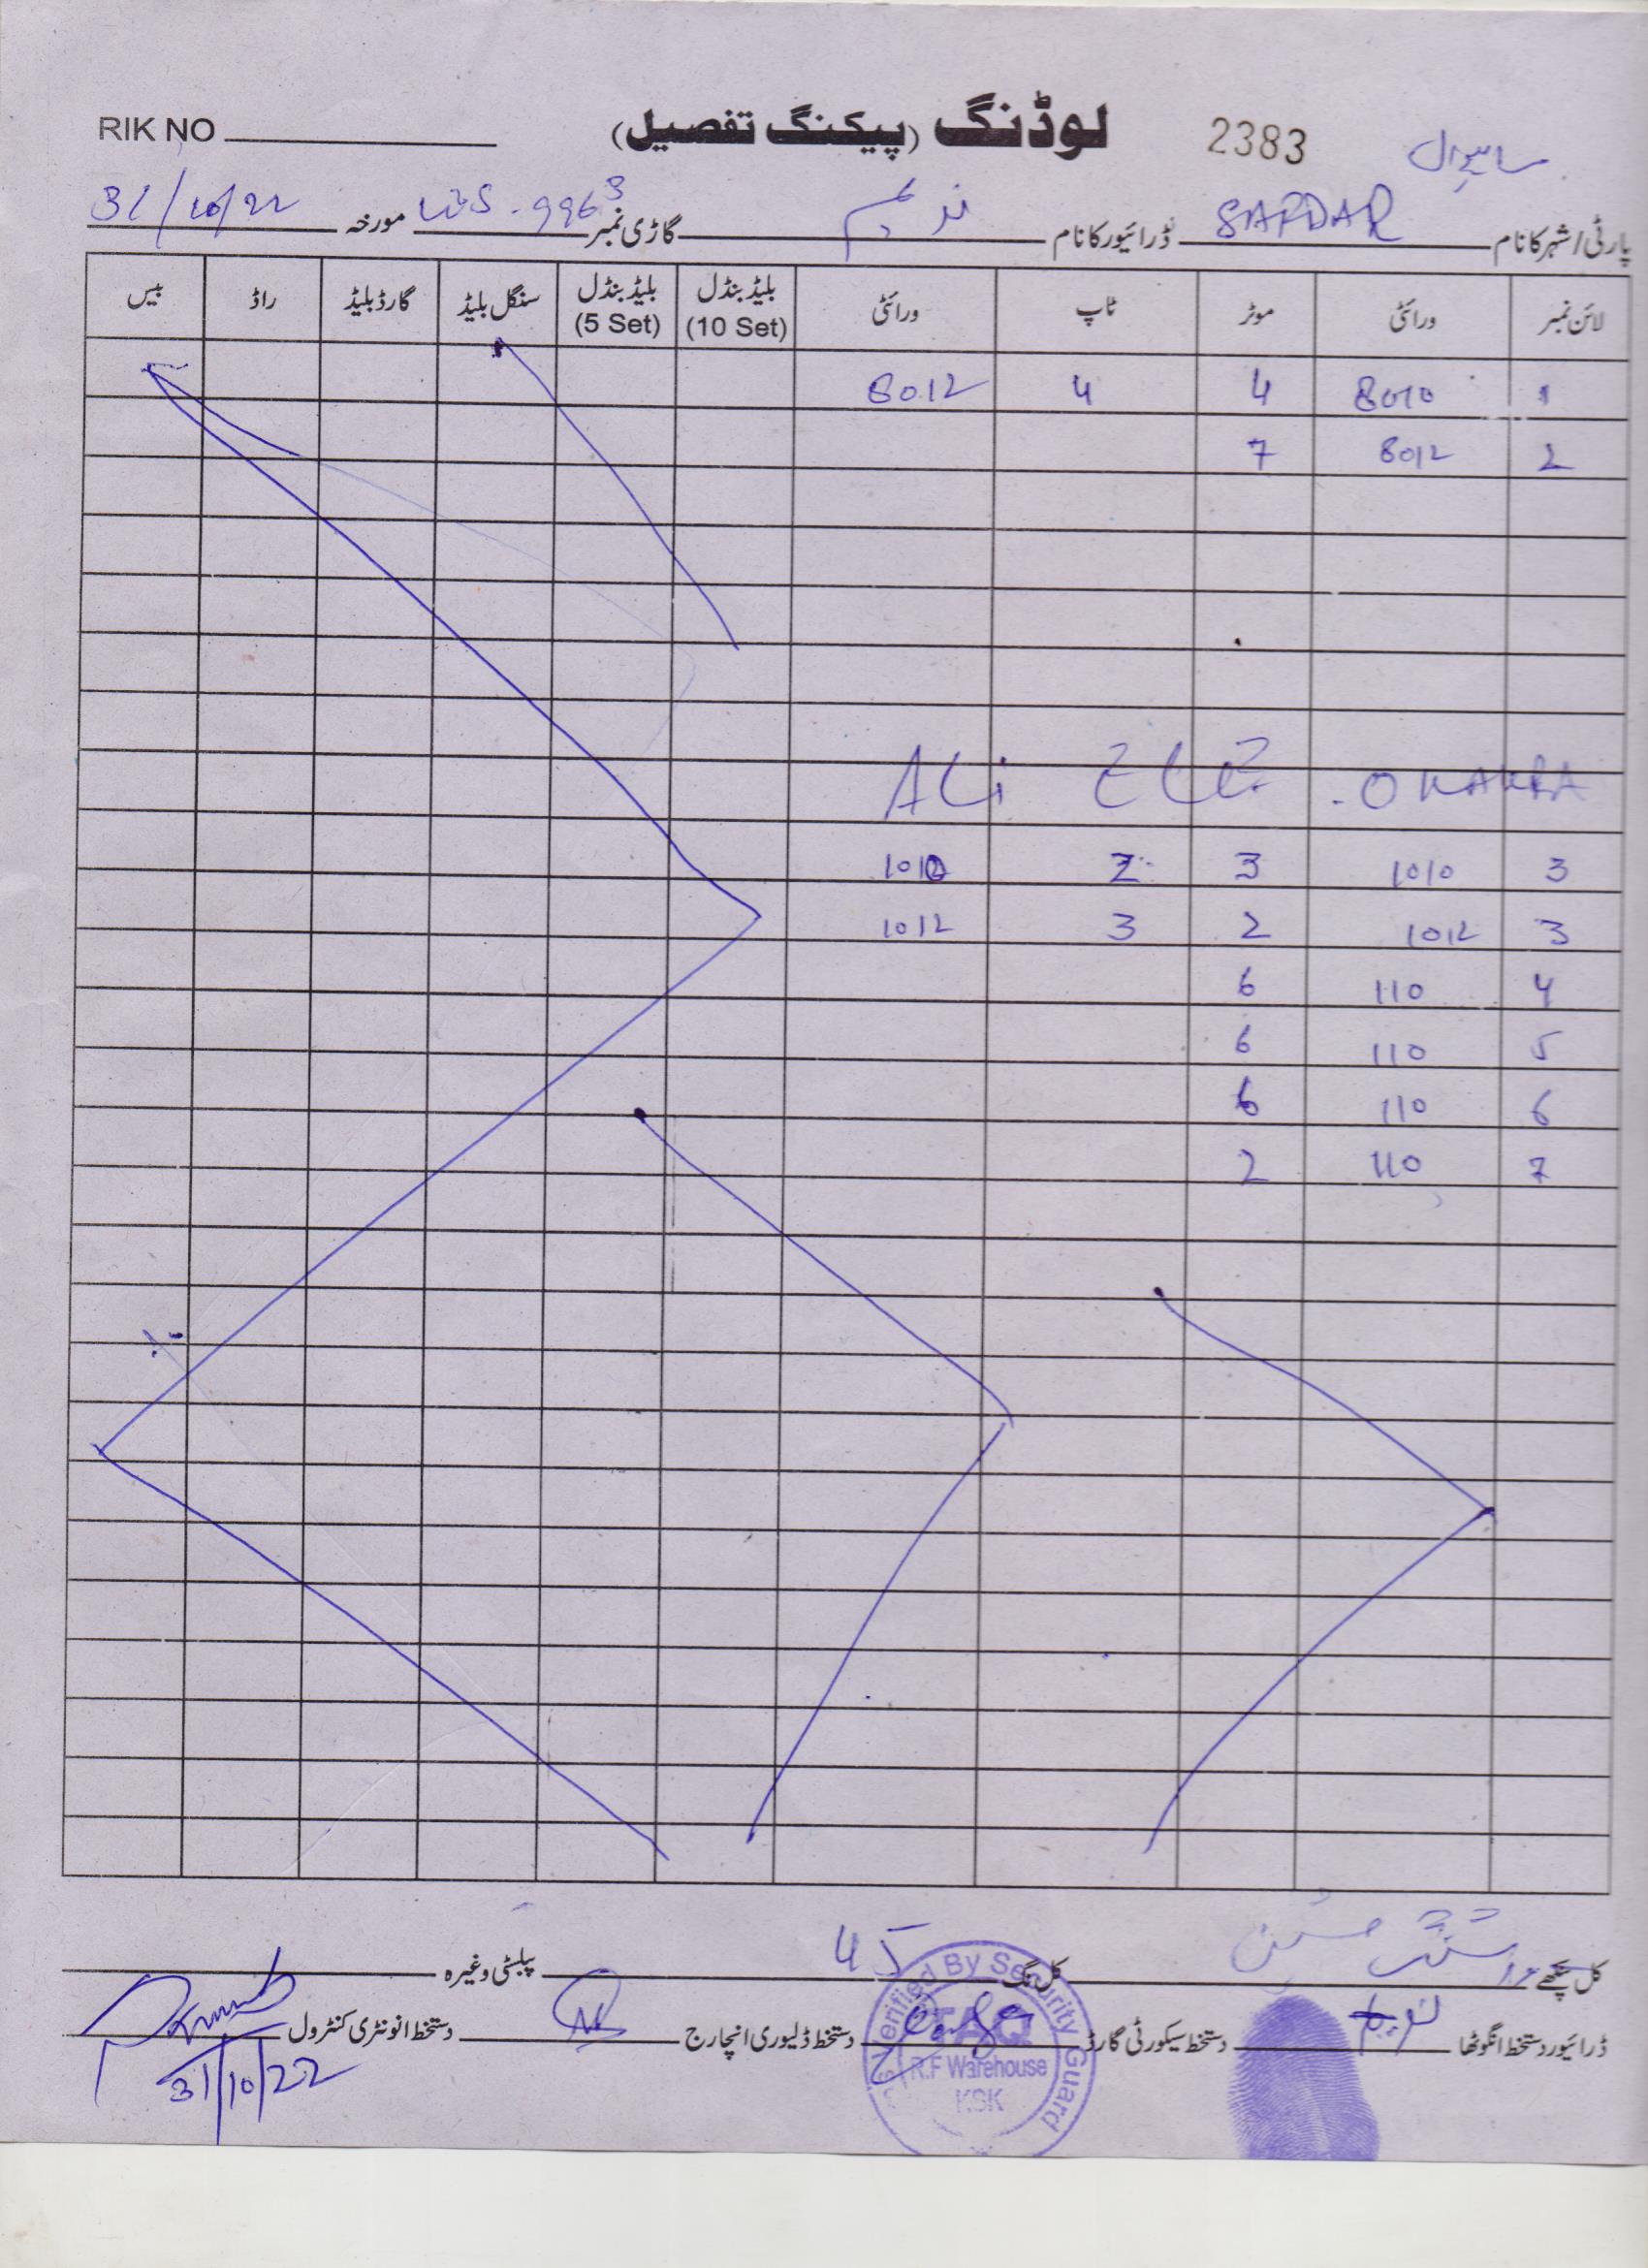 RIK NO لوڈنگ (پیکنگ تفصیل) 2383 ساہیوال
پارٹی/شہر کا نام SAFDAR ڈرائیور کا نام ندیم گاڑی نمبر 9963 مورخہ 31/10/22
لائن نمبر ورائٹی موٹر ٹاپ ورائٹی بلیڈ بنڈل (10 Set) بلیڈ بنڈل (5 Set) سنگل بلیڈ گارڈ بلیڈ راڈ بیس
1 8010 4 4 8012
2 8012 7
ALi ELE. OKAKRA
3 1010 3 2 1010
3 1012 2 3 1012
4 110 6
5 110 6
6 110 6
7 110 2
کل پنکھے کل نگ 45 پبلسٹی وغیرہ
ڈرائیور دستخط انگوٹھا دستخط سیکورٹی گارڈ دستخط ڈلیوری انچارج دستخط انونٹری کنٹرول
Verified By Security Guard
R.F Warehouse
KSK
31/10/22